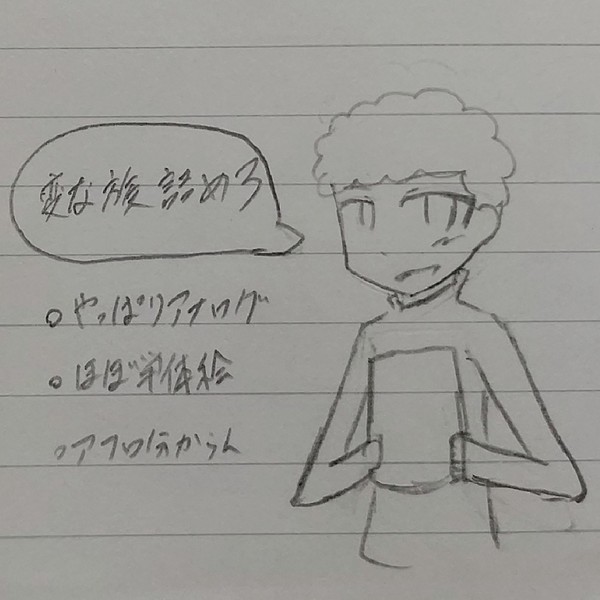 変な族 詰めろ
。やっぱりアナログ
。ほぼ単体絵
。アフロ分からん